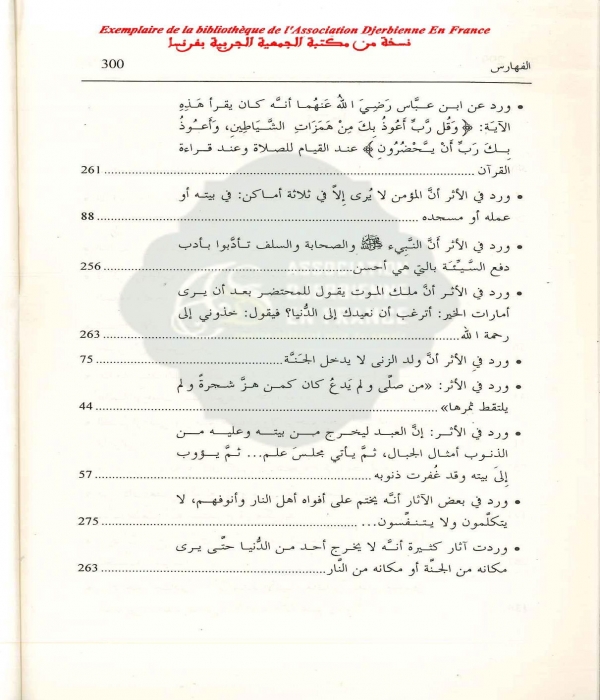 Exemplaire de la bibliothèque de l'Association Djerbienne En France
نسخة من مكتبة الجمعية الجربية بفرنسا
الفهارس 300
• ورد عن ابن عبَّاس رَضِيَ اللهُ عَنهُما أنَّه كان يقرأ هَذِهِ
الآيَةَ: ﴿وَقُل رَّبِّ أَعُوذُ بِكَ مِنْ هَمَزَاتِ الشَّيَاطِينِ، وَأَعُوذُ
بِـكَ رَبِّ أَنْ يَّحْضُرُونِ﴾ عند القيام للصلاة وعند قراءة
القرآن ... 261
• ورد في الأثر أنَّ المؤمن لا يُرى إلاَّ في ثلاثة أماكن: في بيته أو
عمله أو مسجده ... 88
• ورد في الأثر أَنَّ النَّبِيء ﷺ والصحابة والسلف تـأدَّبوا بـأدب
دفع السَّيِّئَة بالتي هي أحسن ... 256
• ورد في الأثـر أنَّ ملـك المـوت يقـول للمحتضـر بعـد أن يـرى
أمارات الخير: أترغب أن نعيدك إلى الدُّنيا؟ فيقول: خذوني إلى
رحمة الله ... 263
• ورد في الأثر أنَّ ولد الزنى لا يدخل الجَنَّة ... 75
• ورد في الأثر: «من صلَّى ولم يَدعُ كان كمن هزَّ شجرةً ولم
يلتقط ثمرها» ... 44
• ورد في الأثـر: إنَّ العبد ليخرج مـن بيتـه وعليـه مـن
الذنوب أمثال الجبال، ثـمَّ يـأتي مجلـسَ علـم... ثـمَّ يـؤوب
إلىَ بيته وقد غُفرت ذنوبه ... 57
• ورد في بعض الآثار أنَّه يختم على أفواه أهل النار وأنوفهم، لا
يتكلَّمون ولا يـتنفَّسون... ... 275
• وردت آثار كثيرة أنَّه لا يخرج أحد من الدُّنيا حتَّى يرى
مكانه من الجنَّة أو مكانه من النَّار ... 263
ASSOCIATION
DJERBIENNE
EN FRANCE